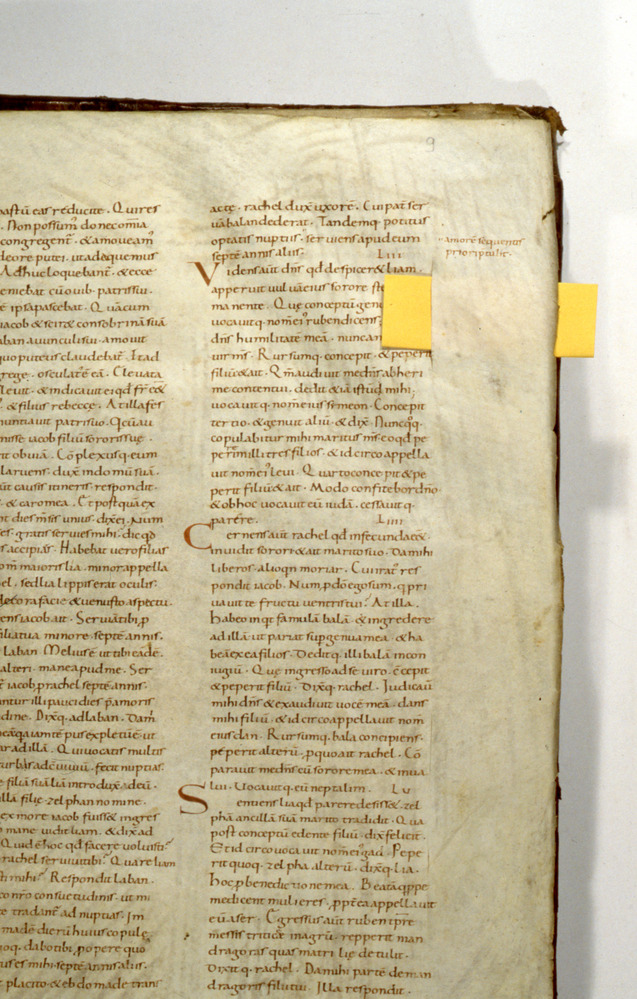 9
pastū eas reducite. Quires
. Non possum donec om̄ia
congregent̄ & amoveam̄
deore putei. ut adaquemus
Adhuc loquebant̄. & ecce
eniebat cū ovib. patris sui.
ē ipsa pascebat. Quā cum
iacob & scir& consobrinā suā
aban avunculi sui. amovit
quo puteus claudebat̄. Et ad
rege. osculat' ē eā. Elevata
levit. & indicavit ei qd fr̄ eēt
. & filius rebecce. At illa fes
nuntiavit patri suo. Qcū au
nisse iacob filiū sororis suę.
it obviā. Cōplexusq. eum
la ruens. duxit in domū suā.
ut causis itineris. respondit.
. & caro mea. Et postquā ex
t dies m̄sis unius. dix ei. Num
es. gratis servies mihi? dic qd
s accipias. Habebat vero filias
om̄ maioris lia. minor appella
el. sed lia lippis erat oculis.
decora facie & venusto aspectu.
ens iacob. ait. Serviā tibi p
filia tua minore. septē annis.
laban. Meli' ē ut tibi eā dē.
alteri. mane apud me. Ser
iacob p rachel septē annis.
ntur illi pauci dies p̄ amoris
dine. Dixq. ad laban. Da m̄
eā q̄a iam tēpus expletū ē. ut
r ad illā. Qui vocatis multis
turbis ad cēuiuiū. fecit nuptias.
e filiā suā liā introdux ad eū.
lla filię. zelphan nomine.
ex more iacob fuiss& ingres
o mane vidit liam. & dix ad
Quid ē hoc qd facere voluisti?
rachel servivi tibi? Quare liam
ti mihi? Respondit laban.
co nr̄o consuetudinis. ut mi
te tradant̄ ad nuptias. Im
madē dierū huius copulę.
oq. dabo tibi p opere quo
us es mihi septē annis aliis.
t placito. & ebdomade trans
acta. rachel dux uxorē. Cui pat̄ ser
vā balan dederat. Tandemq. potitus
optatis nuptiis. serviens apud eum
septē annis aliis. LIII
Videns aūt dn̄s qd despicer& liam.
apperuit vulvā eius sorore ste
manente. Que conceptū gen
vocavitq. nom̄ ei' ruben dicens
dn̄s humilitatē meā. nunc am
vir m̄s. Rursumq. concepit. & peperit
filiū & ait. Qm̄ audivit me dn̄s abheri
me contentui. dedit & iā istud mihi.
vocavitq. nom̄ eius simeon. Concepit
tertio. & genuit aliū. & dix. Nuncq̄q.
copulabitur mihi maritus m̄s. eo qd pe
perim illi tres filios. & idcirco appella
vit nom̄ ei' levi. Quarto concepit & pe
perit filiū & ait. Modo confitebor dn̄o
& ob hoc vocavit eū iudā. cessavitq.
parere. LIIII
Cernens aūt rachel qd infecunda eē&.
invidit sorori & ait marito suo. Da mihi
liberos. alioqn moriar. Cui irat' res
pondit iacob. Num p dō ego sum. q pri
vavit te fructu ventris tui? At illa.
Habeo inqt famulā balā. & ingredere
ad illā. ut pariat sup genua mea. & ha
beā ex ea filios. Deditq. illi balā in con
iugiū. Quę ingresso ad se viro. cēcepit
& peperit filiū. Dixq. rachel. Iudicau
mihi dn̄s & exaudivit vocē meā. dans
mihi filiū. & idcirco appellavit nom̄
eius dan. Rursumq. bala concipiens.
peperit alterū. p quo ait rachel. Cō
paravit me dn̄s cū sorore mea. & inva
lui. Vocavitq. eū neptalim. LV
Sentiens lia qd parere desiss&. zel
phā ancillā suā marito tradidit. Qua
post conceptū edente filiū. dix feliciter.
Et idcirco vocavit nom̄ ei' gad. Pepe
ritquoq. zelpha alterū. dixq. lia.
Hoc p benedictione mea. Beatā q̄ppe
me dicent mulieres. ppt̄ ea appellavit
eū aser. Egressus aūt ruben tp̄re
messis triticę in agrū. repperit man
dragoras quas matri lię detulit.
Dixitq. rachel. Da mihi partē de man
dragoris filii tui. Illa respondit.
amore sequentis
priori ptulit.